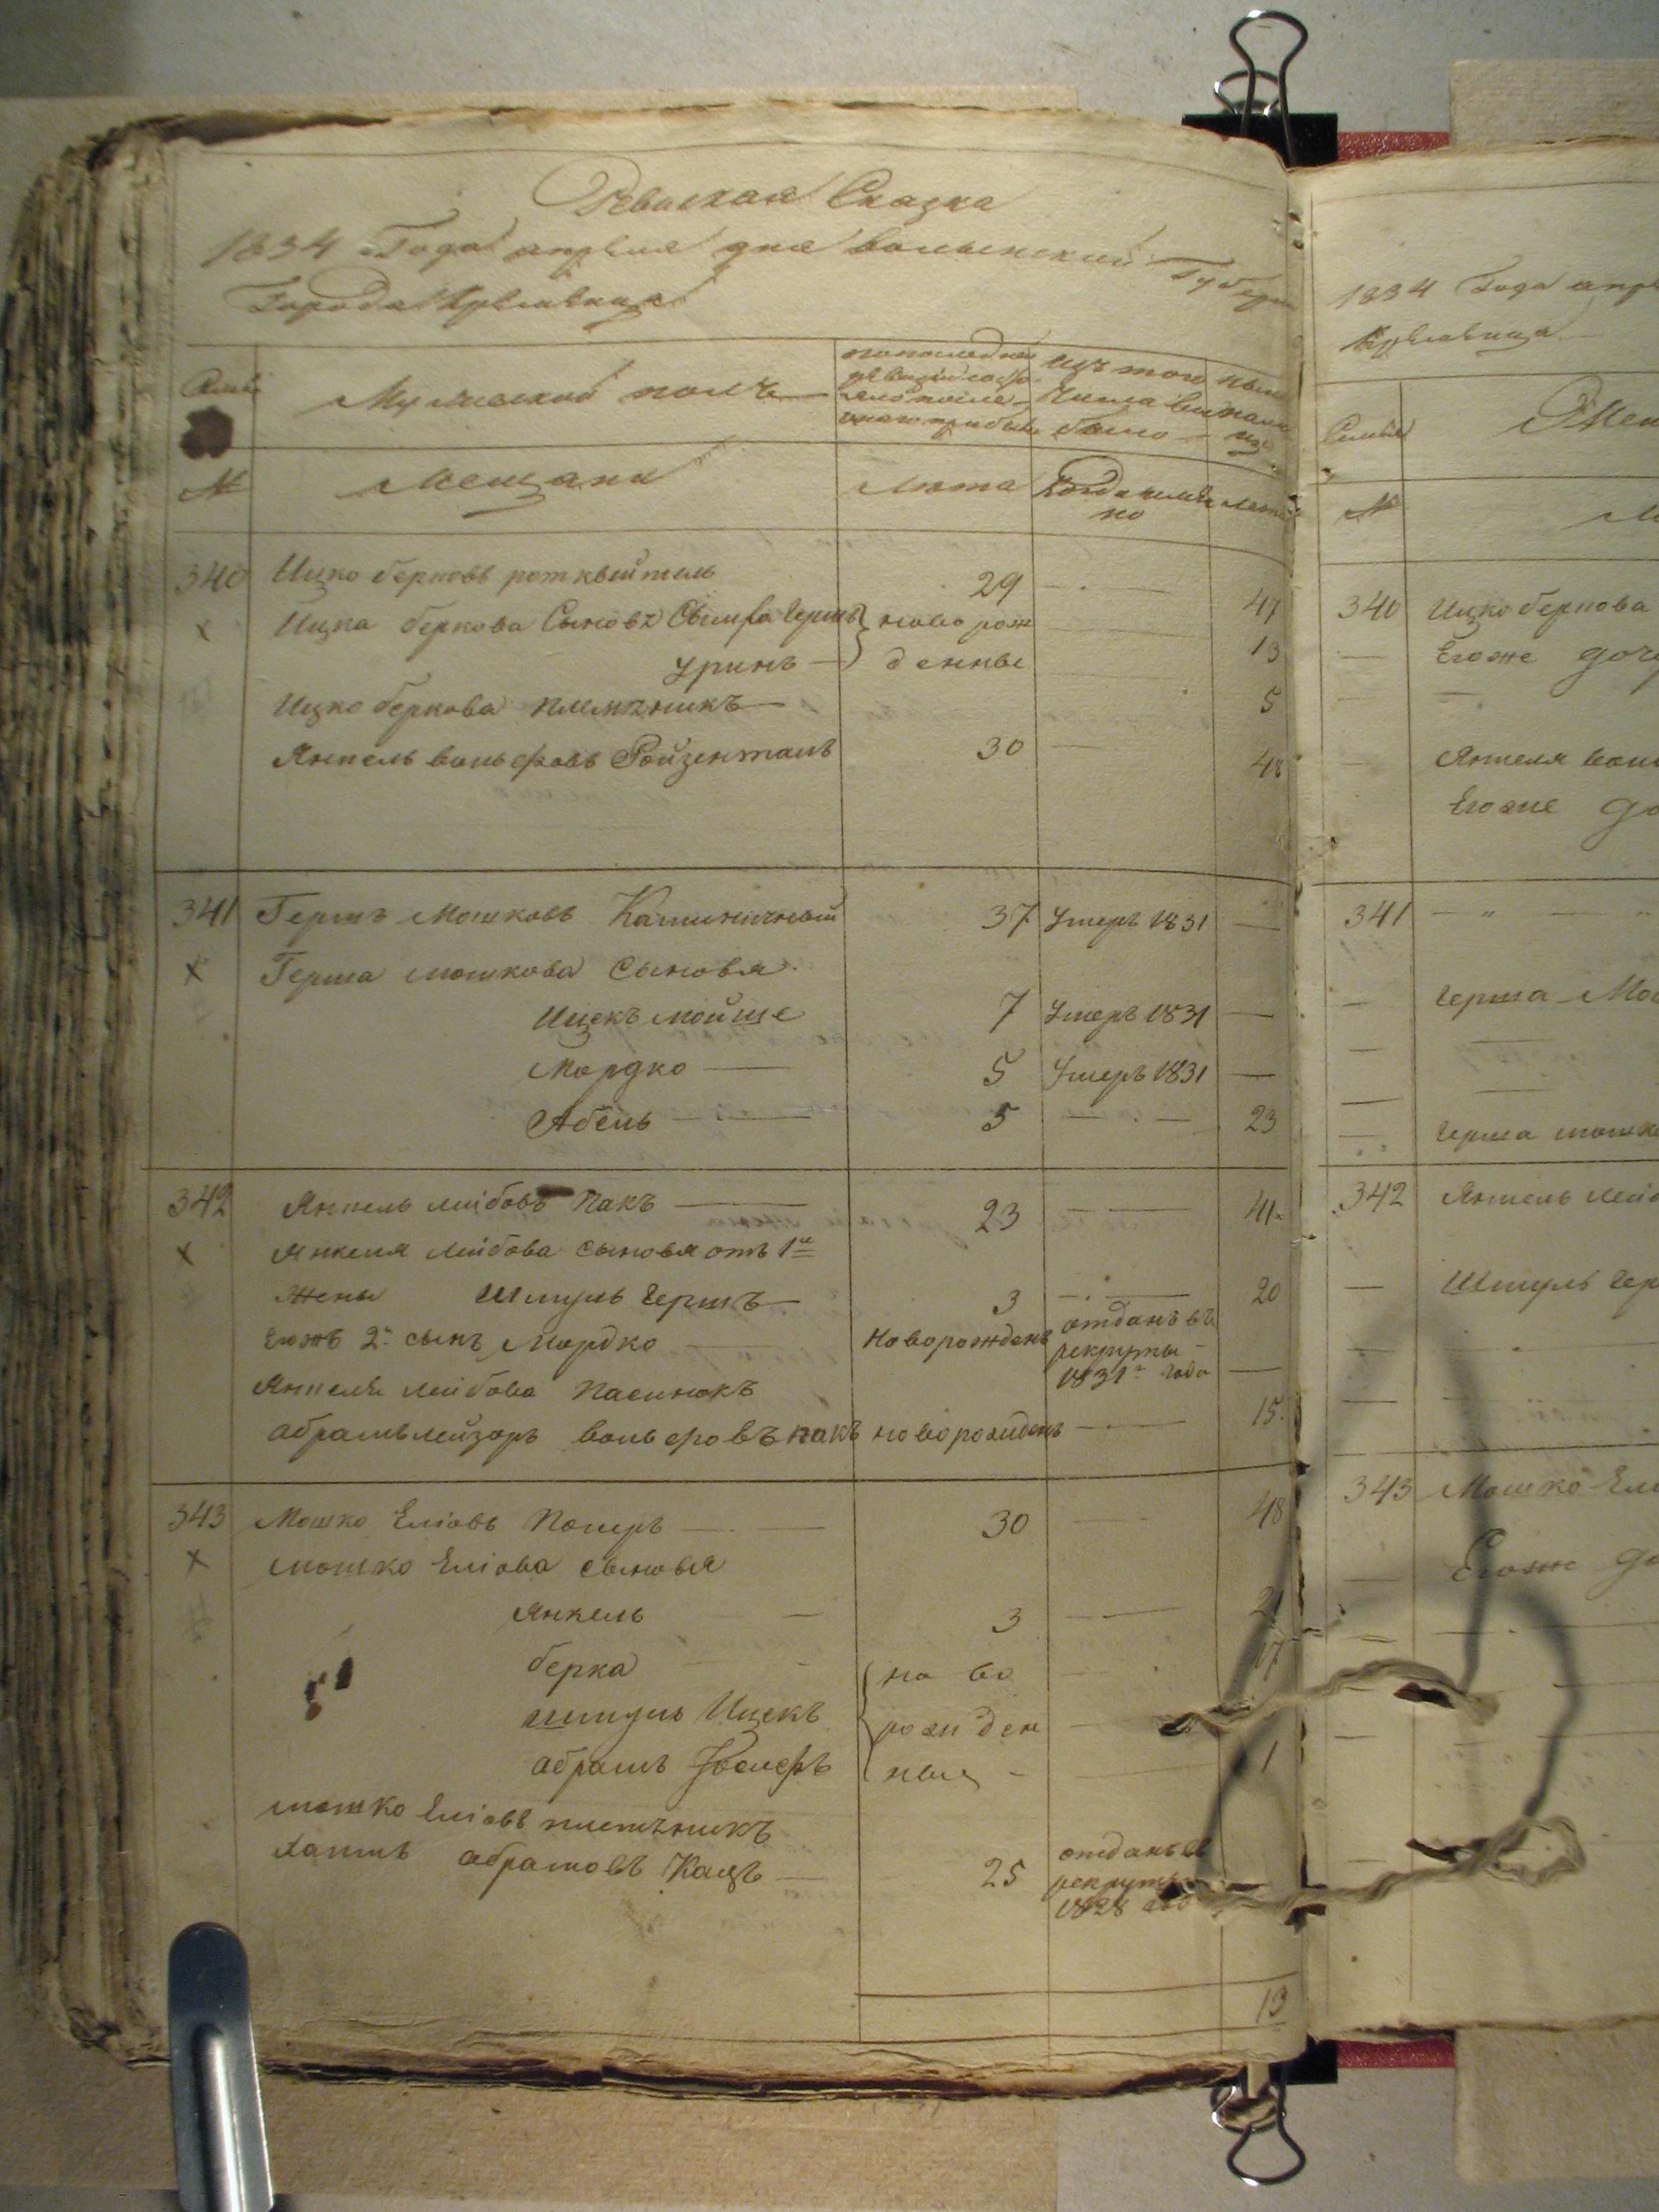 Ревизская Сказка
1834 Года апреля дня волынской Губерн
Города Кременца
Семьи
Мужеский полъ
по последней
ревизіи состо
яло и после
оной прибыло
Изъ того
Числа выбыло
ныне
на лицо
№
Мещане
Лета
Когда имен
но
Лета
340 Ицко берковъ ротквейтель 29 — 47
х Ицка беркова Сыновъ Гершъ ново рож — 13
Уринъ — денны 5
Ицко беркова племяникъ —
Янкель вольфовъ Ройзенталъ 30 — 48
341 Гершъ Мошковъ Каминичный 37 Умеръ 1831 —
х Герша мошкова Сыновья
Ицекъ мойше 7 Умеръ 1831 —
Мордко — 5 Умеръ 1831 —
Абель — — 5 — · — 23
342 Янкель лейбовъ Пакъ — 23 — — 41
х Янкеля лейбова сыновья отъ 1й
жены Шмуль Гершъ — 3 — 20
Егожъ 2й сынъ Мордко — Новорожденъ отданъ въ
рекруты
1831го года —
Янкеля лейбова Пасинокъ
абрамъ лейзоръ вольфовъ пакъ новорожденъ — 15
343 Мошко Еліовъ Поперъ — 30 — 48
х мошко Еліова сыновья
Янкель — 3 — — 21
берка — но во — 17
шмуль Ицекъ рожден —
абрамъ Іосефъ ные — 1
мошко Еліовъ племяникъ
абрамовъ Кацъ — 25 отданъ въ
рекруты
1828 год
13
1834 Года апре
Кременца
Семьи Жен
№ М
340 Ицко беркова
— Егоже доче
—
— Янкеля воль
Егоже до
341 — " — "
— Герша Мош
—
—
— Герша мошко
342 Янкель лейб
— Шмуль Гер
—
—
343 Мошко Елі
— Егоже до